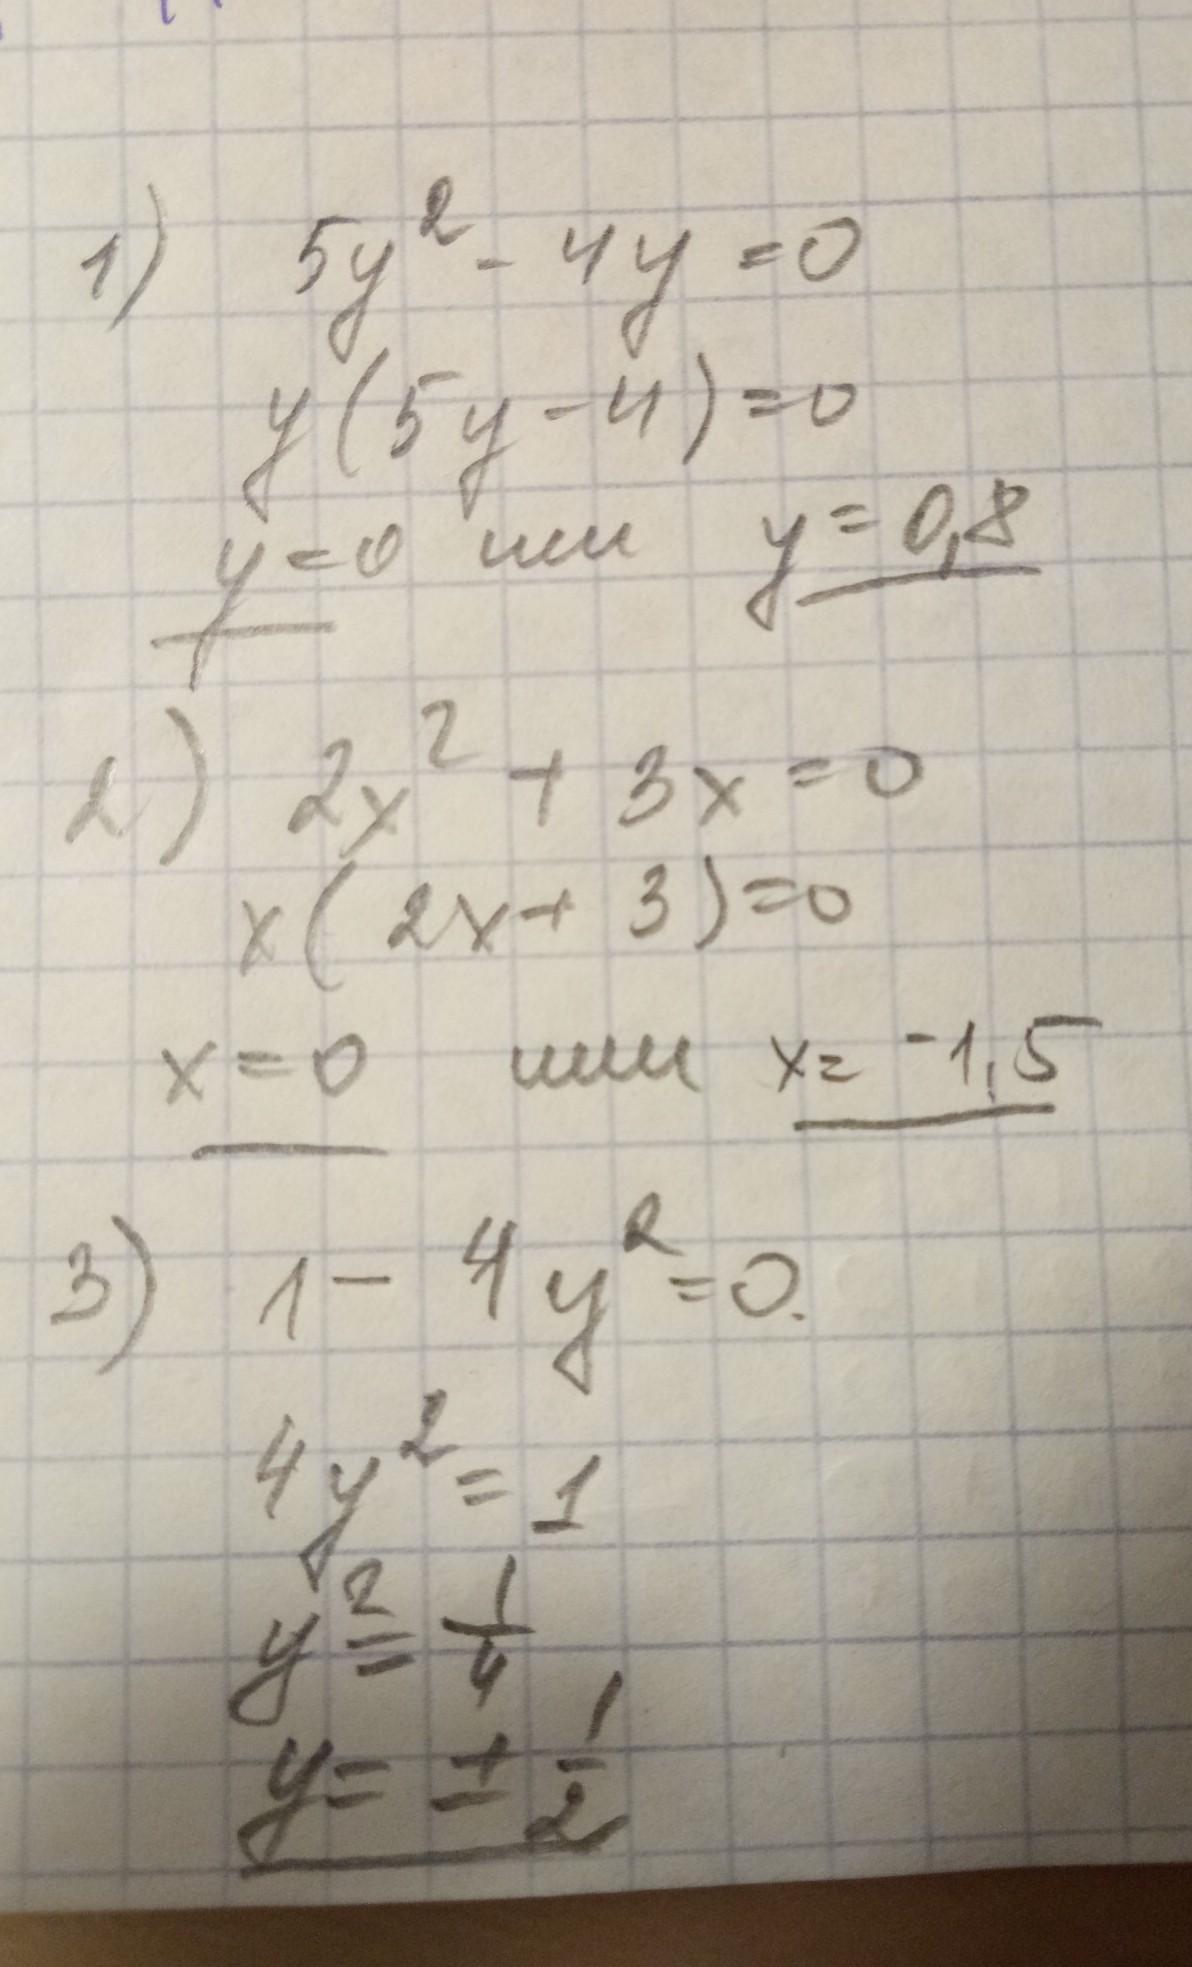 1) 5y² - 4y = 0
y(5y - 4) = 0
y = 0 или y = 0,8
2) 2x² + 3x = 0
x(2x + 3) = 0
x = 0 или x = -1,5
3) 1 - 4y² = 0.
4y² = 1
y² = 1/4
y = ± 1/2